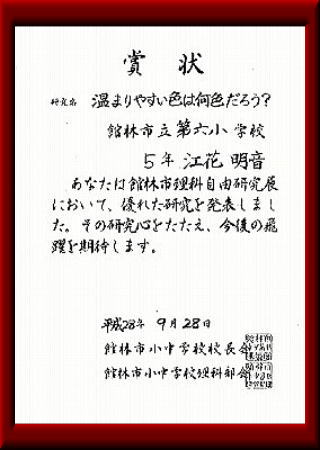 賞状
研究名 温まりやすい色は何色だろう?
館林市立第六小学校
5年 江花 明音
あなたは館林市理科自由研究展
において、優れた研究を発表しまし
た。その研究心をたたえ、今後の飛
躍を期待します。
平成28年 9月28日
館林市小中学校校長会
館林市小中学校理科部会